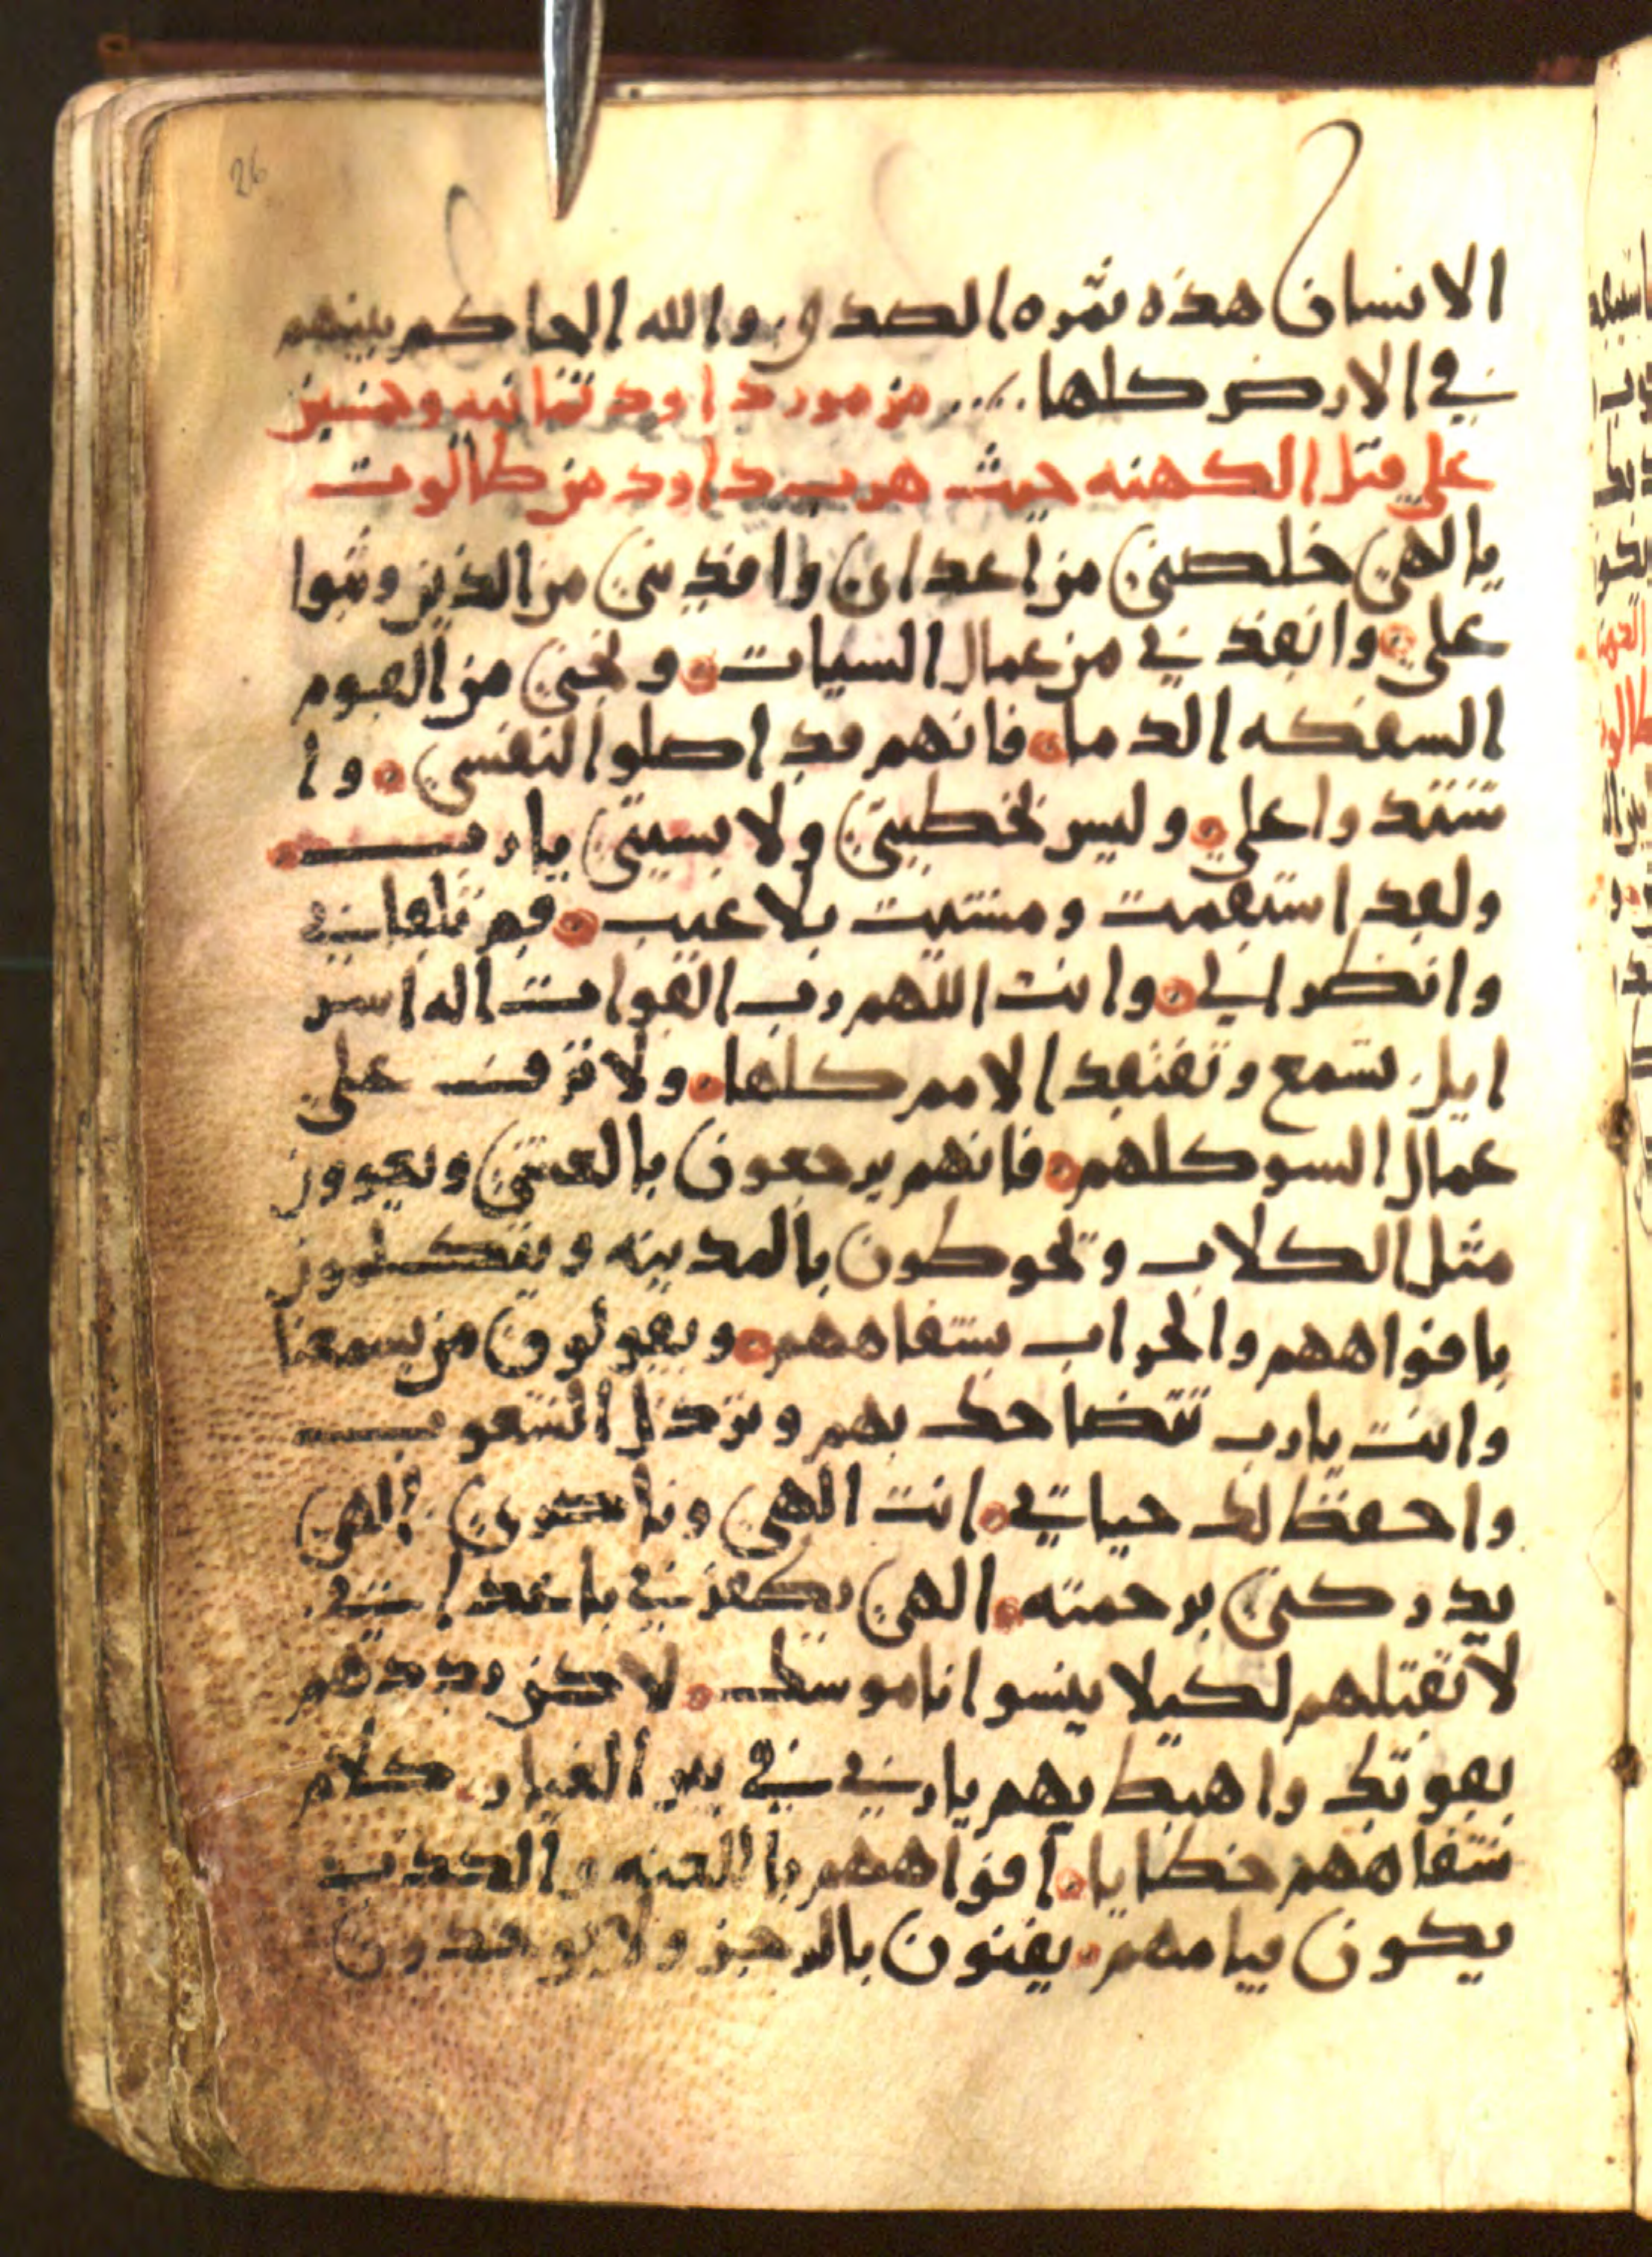 26
الانسان هذه ثمره الصدق والله الحاكم بينهم
في الارض كلها مزمور داود ثمانيه وخمسين
على قتل الكهنه حيث هرب داود من طالوت
يا الهي خلصني من اعداي وافديني من الذين وثبوا
علي وانقذني من عمال السيات ونجني من القوم
السفكه الدما فانهم قد اصلوا لنفسي وا
شتدوا علي وليس بخطيتي ولا بسيتي يا رب
ولقد استقمت ومشيت بلا عيب قم تلقاني
وانظر الي وانت اللهم رب القوات اله اسر
ايل تسمع وتفتقد الامم كلها ولا ترف على
عمال السو كلهم فانهم يرجعون بالعشي ويعوون
مثل الكلاب ويحوطون بالمدينه ويتكلمون
بافواههم والحراب بشفاههم ويقولون من يسمعنا
وانت يا رب تتضاحك بهم وترذل الشعوب
واحفظ لك حياتي انت الهي وناصري الهي
يدركني برحمته الهي
لا تقتلهم لكيلا ينسوا ناموسك لاكن بددهم
بقوتك واهبط بهم يا رب في بير الغيار كلام
شفاههم خطايا افواههم باللعنه والكذب
يكون قيامهم يفنون بالرجز ولا يوجدون